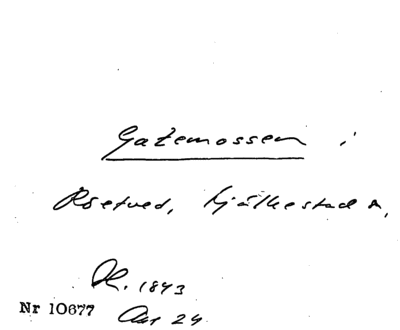 Gatemossen i
Röetved, Kjälkestad s,
Kl. 1843
Nr 10677 Akt 24